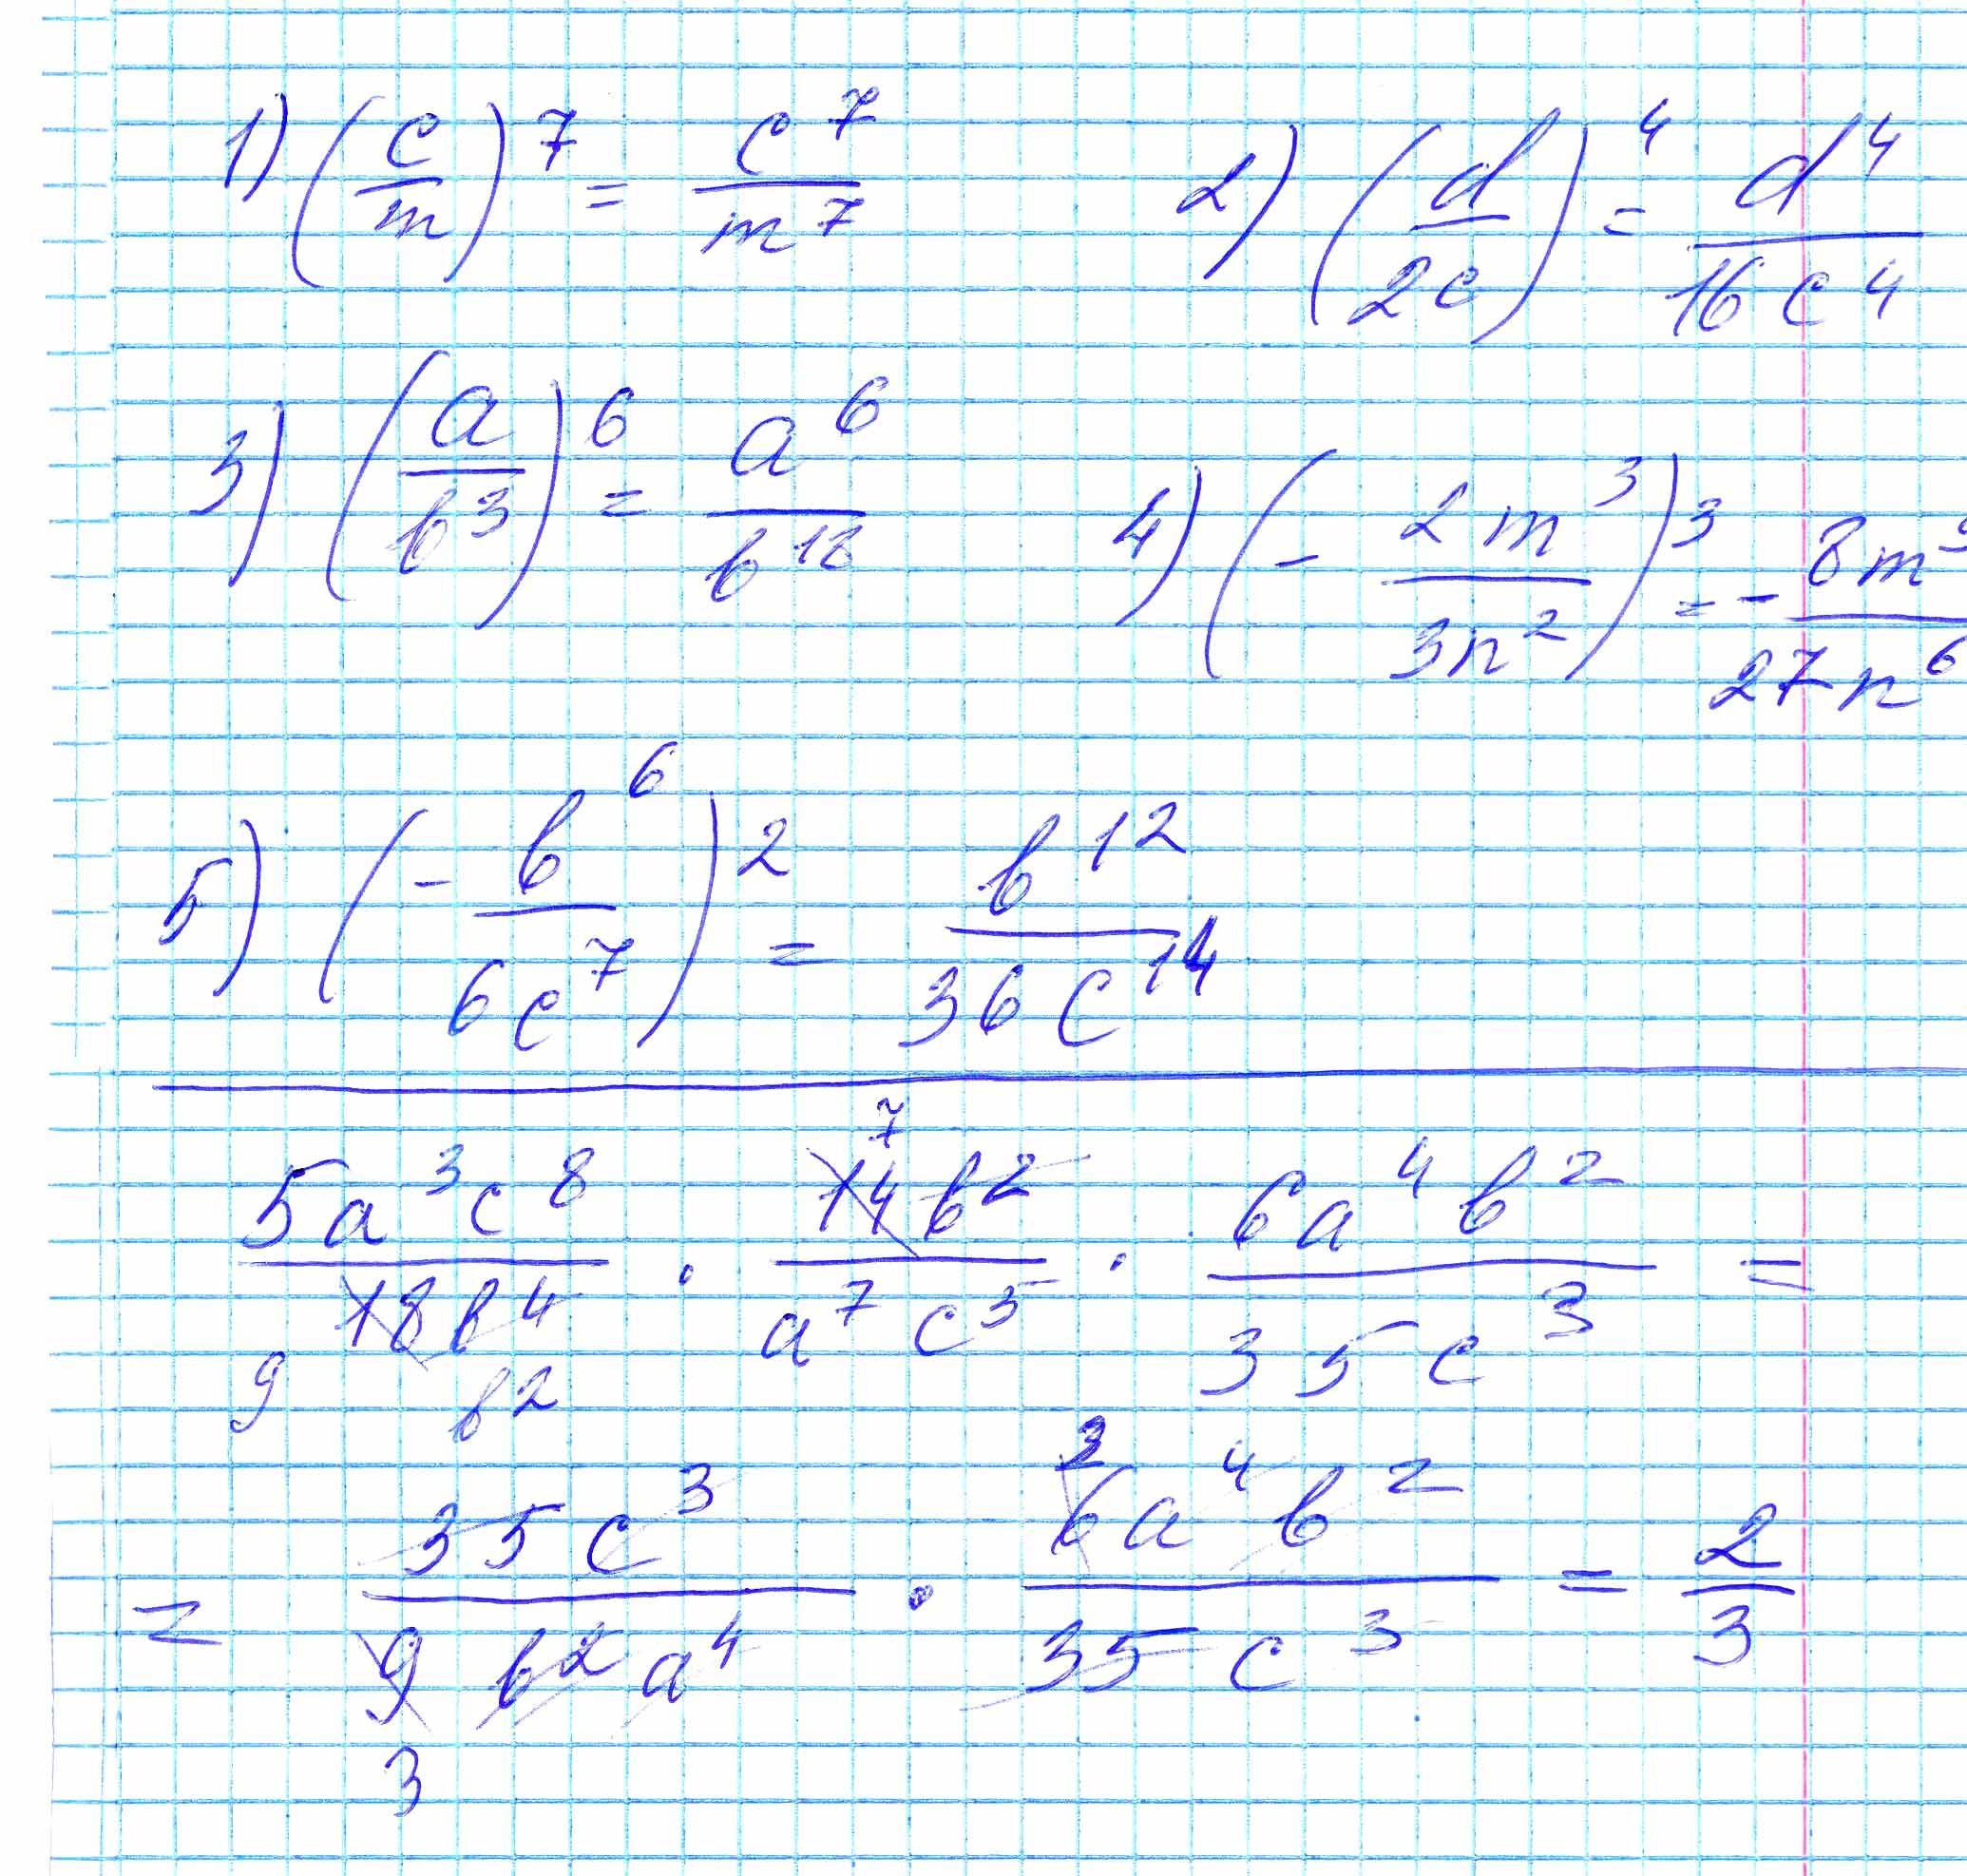 1) (c/m)^7 = c^7/m^7 2) (d/2c)^4 = d^4/16c^4
3) (a/b^3)^6 = a^6/b^18 4) (- 2m^3/3n^2)^3 = - 8m^9/27n^6
5) (- b^6/6c^7)^2 = b^12/36c^14
7
5a^3c^8/18b^4 · 14b^2/a^7c^5 · 6a^4b^2/35c^3 =
9 b^2
2
= 35c^3/9b^2a^4 · 6a^4b^2/35c^3 = 2/3
3